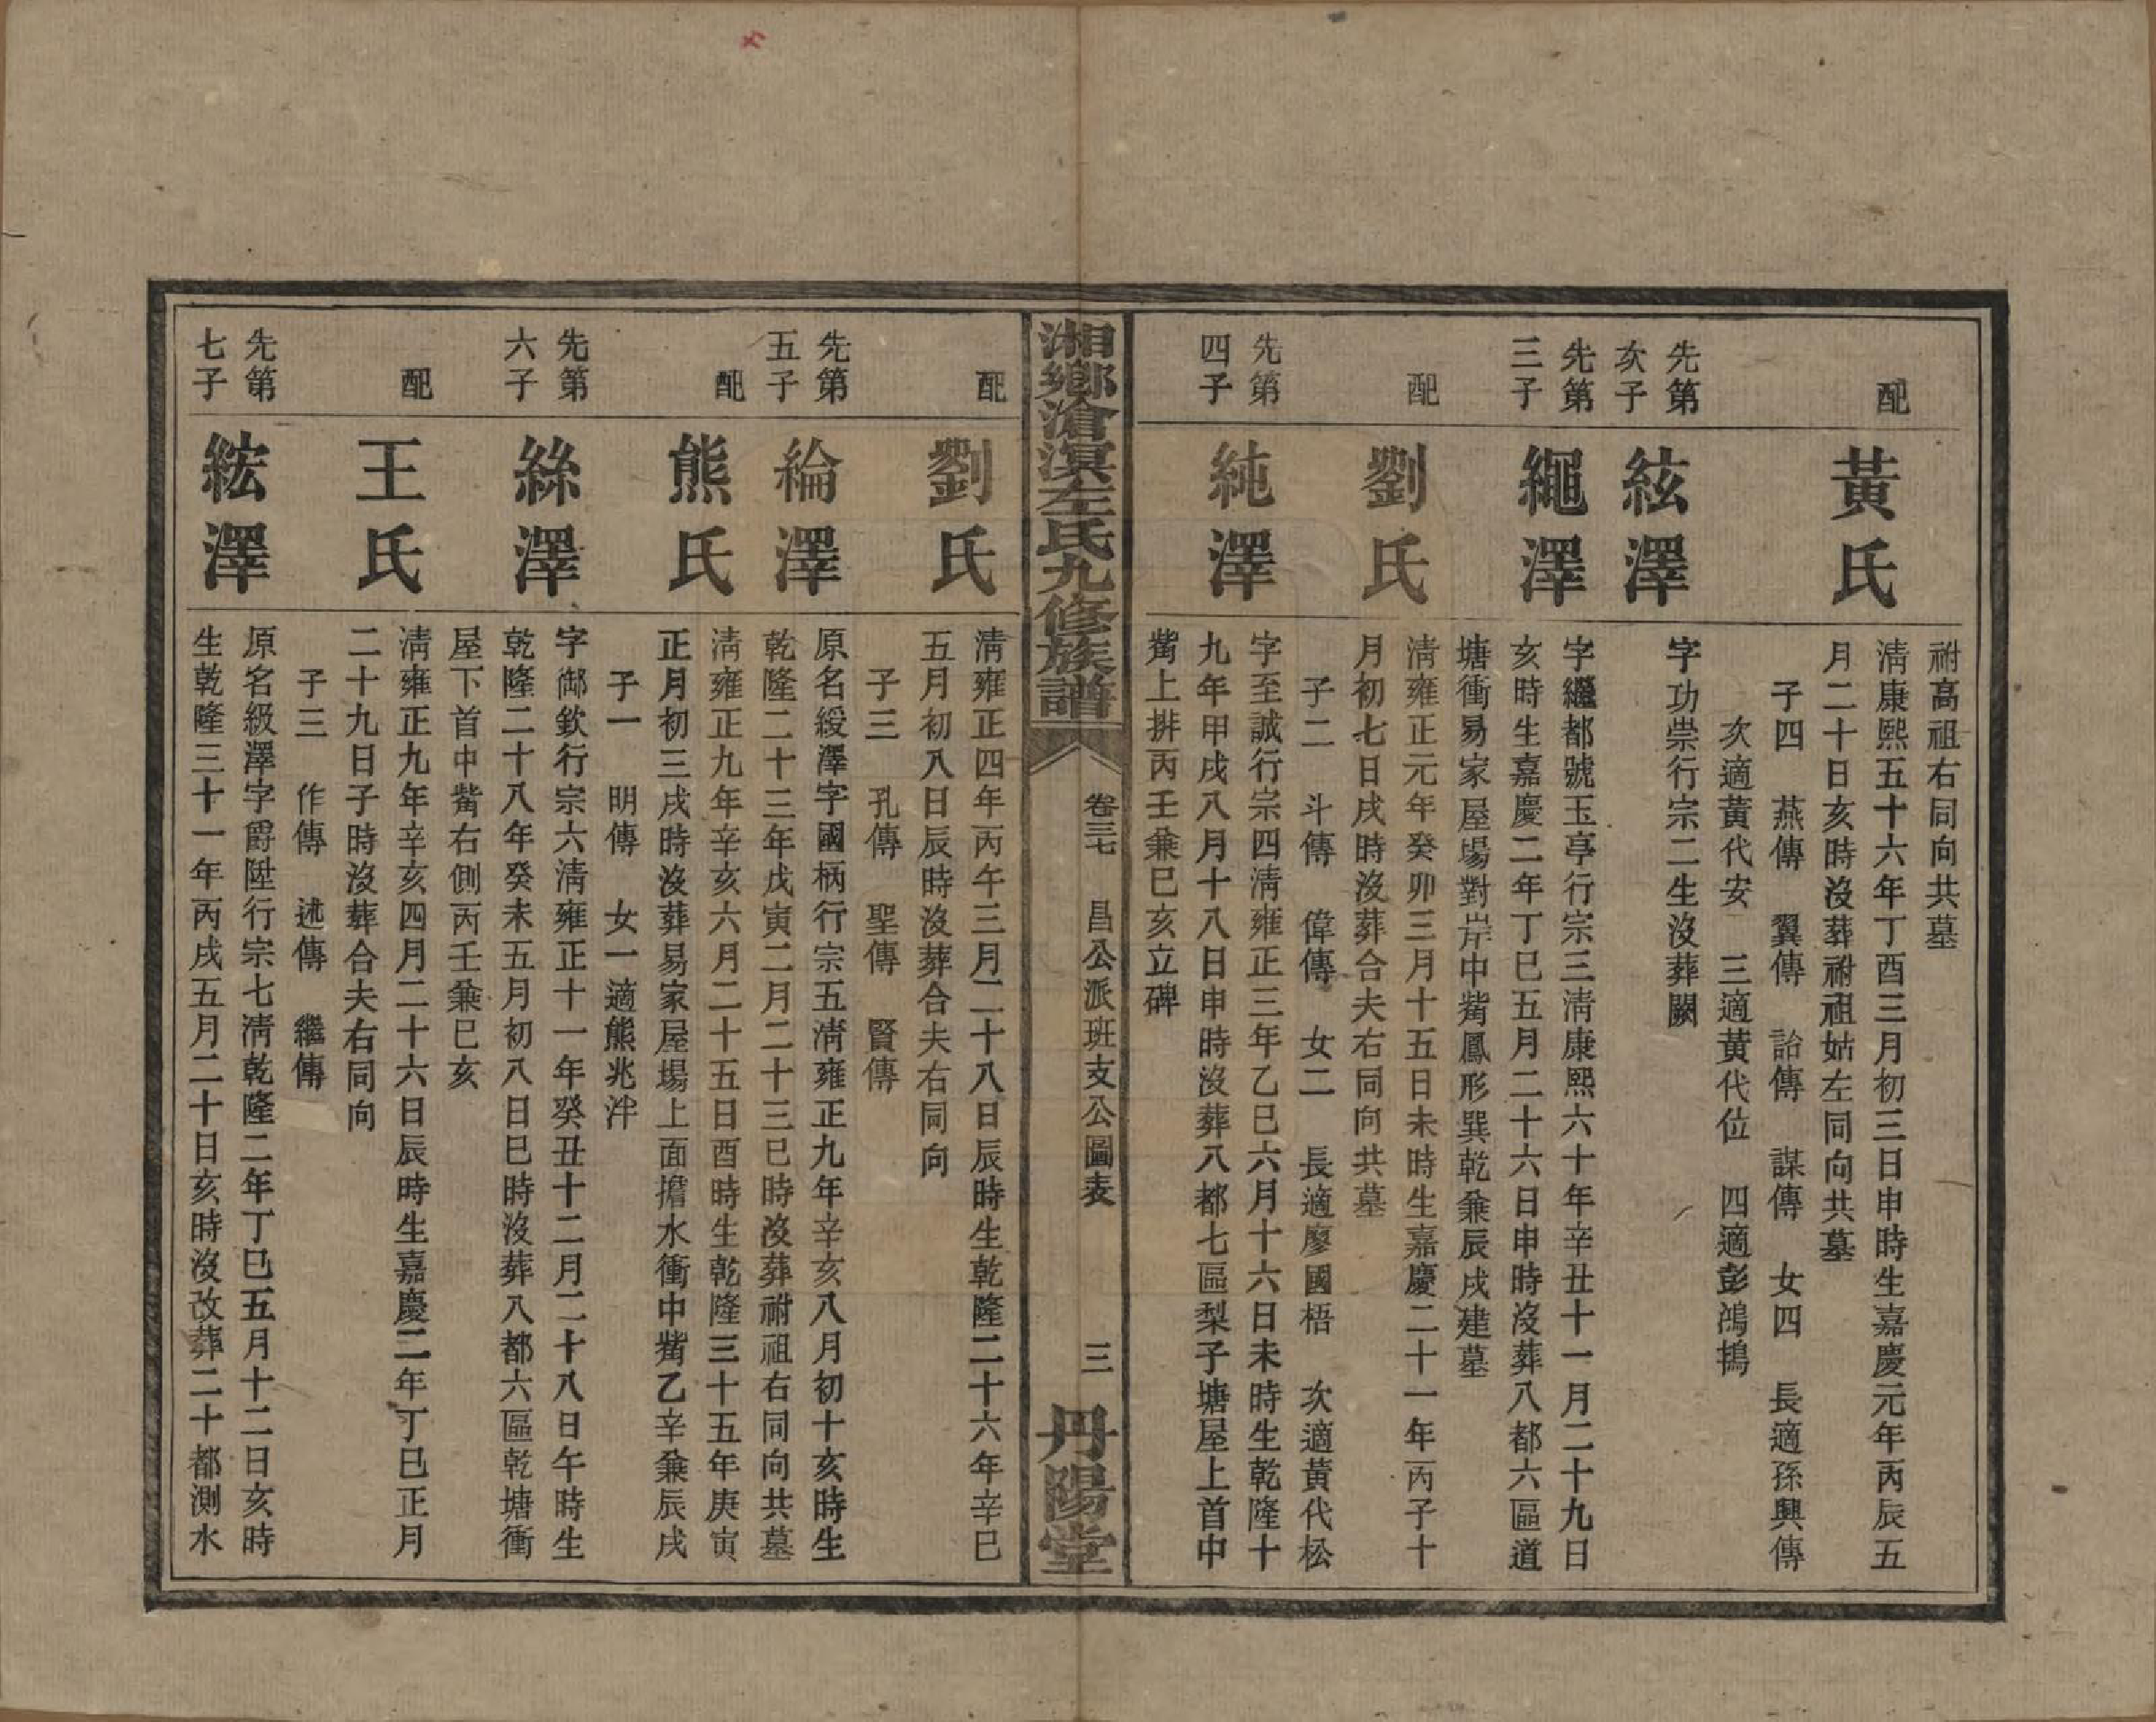 祔高祖右同向共墓
配
黃氏
清康熙五十六年丁酉三月初三日申時生嘉慶元年丙辰五
月二十日亥時沒葬祔祖姑左同向共墓
子四 燕傳 翼傳 詒傳 謀傳 女四 長適孫興傳
次適黃代安 三適黃代位 四適彭鴻搗
先第
次子
絃澤
字功崇行宗二生沒葬闕
先第
三子
繩澤
字繼都號玉亭行宗三清康熙六十年辛丑十一月二十九日
亥時生嘉慶二年丁巳五月二十六日申時沒葬八都六區道
塘衝易家屋場對岸中觜鳳形巽乾兼辰戌建墓
配
劉氏
清雍正元年癸卯三月十五日未時生嘉慶二十一年丙子十
月初七日戌時沒葬合夫右同向共墓
子二 斗傳 偉傳 女二 長適廖國梧 次適黃代松
先第
四子
純澤
字至誠行宗四清雍正三年乙巳六月十六日未時生乾隆十
九年甲戌八月十八日申時沒葬八都七區梨子塘屋上首中
觜上排丙壬兼巳亥立碑
湘鄉滄溟左氏九修族譜
卷三七 昌公派班支公圖表 三
丹陽堂
配
劉氏
清雍正四年丙午三月二十八日辰時生乾隆二十六年辛巳
五月初八日辰時沒葬合夫右同向
子三 孔傳 聖傳 賢傳
先第
五子
綸澤
原名綬澤字國柄行宗五清雍正九年辛亥八月初十亥時生
乾隆二十三年戊寅二月二十三巳時沒葬祔祖右同向共墓
配
熊氏
清雍正九年辛亥六月二十五日酉時生乾隆三十五年庚寅
正月初三戌時沒葬易家屋場上面擔水衝中觜乙辛兼辰戌
子一 明傳 女一適熊兆泮
先第
六子
絲澤
字鄰欽行宗六清雍正十一年癸丑十二月二十八日午時生
乾隆二十八年癸未五月初八日巳時沒葬八都六區乾塘衝
屋下首中觜右側丙壬兼巳亥
配
王氏
清雍正九年辛亥四月二十六日辰時生嘉慶二年丁巳正月
二十九日子時沒葬合夫右同向
子三 作傳 述傳 繼傳
先第
七子
紘澤
原名級澤字爵陞行宗七清乾隆二年丁巳五月十二日亥時
生乾隆三十一年丙戌五月二十日亥時沒改葬二十都測水